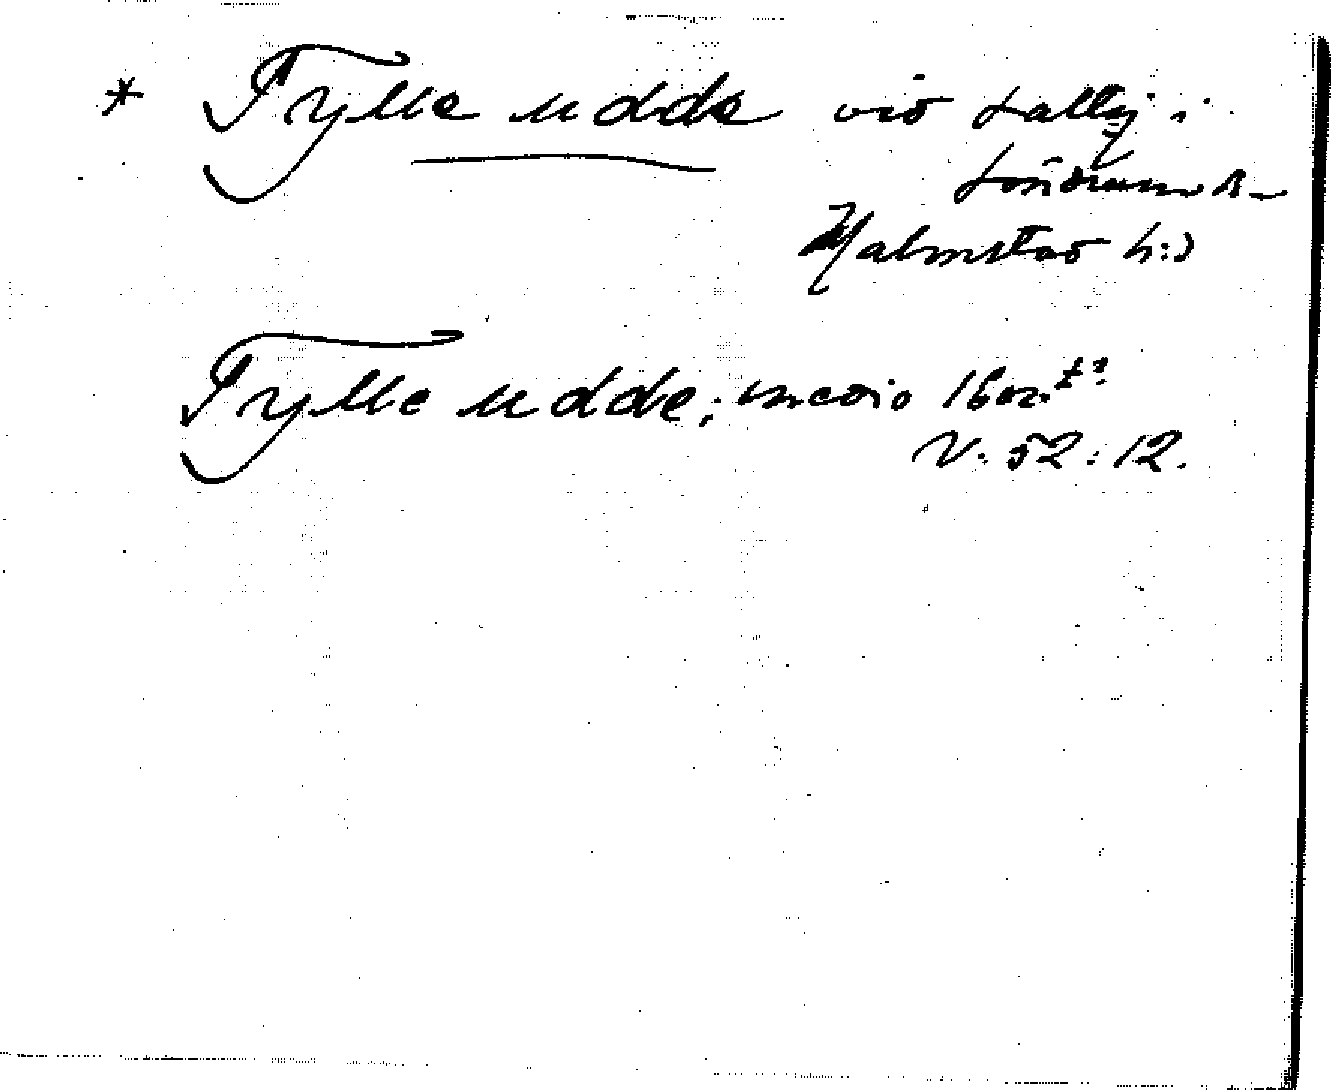 * Tylle udde vid Laltij i
Söndrum s.
Halmstad h:d
Tylle udde; medio 1600t?
V. 52:12.